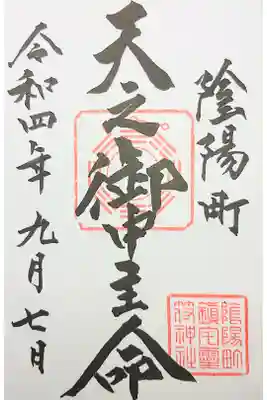 陰陽町
天之御中主命
令和四年 九月七日
陰陽町
鎮宅霊
符神社